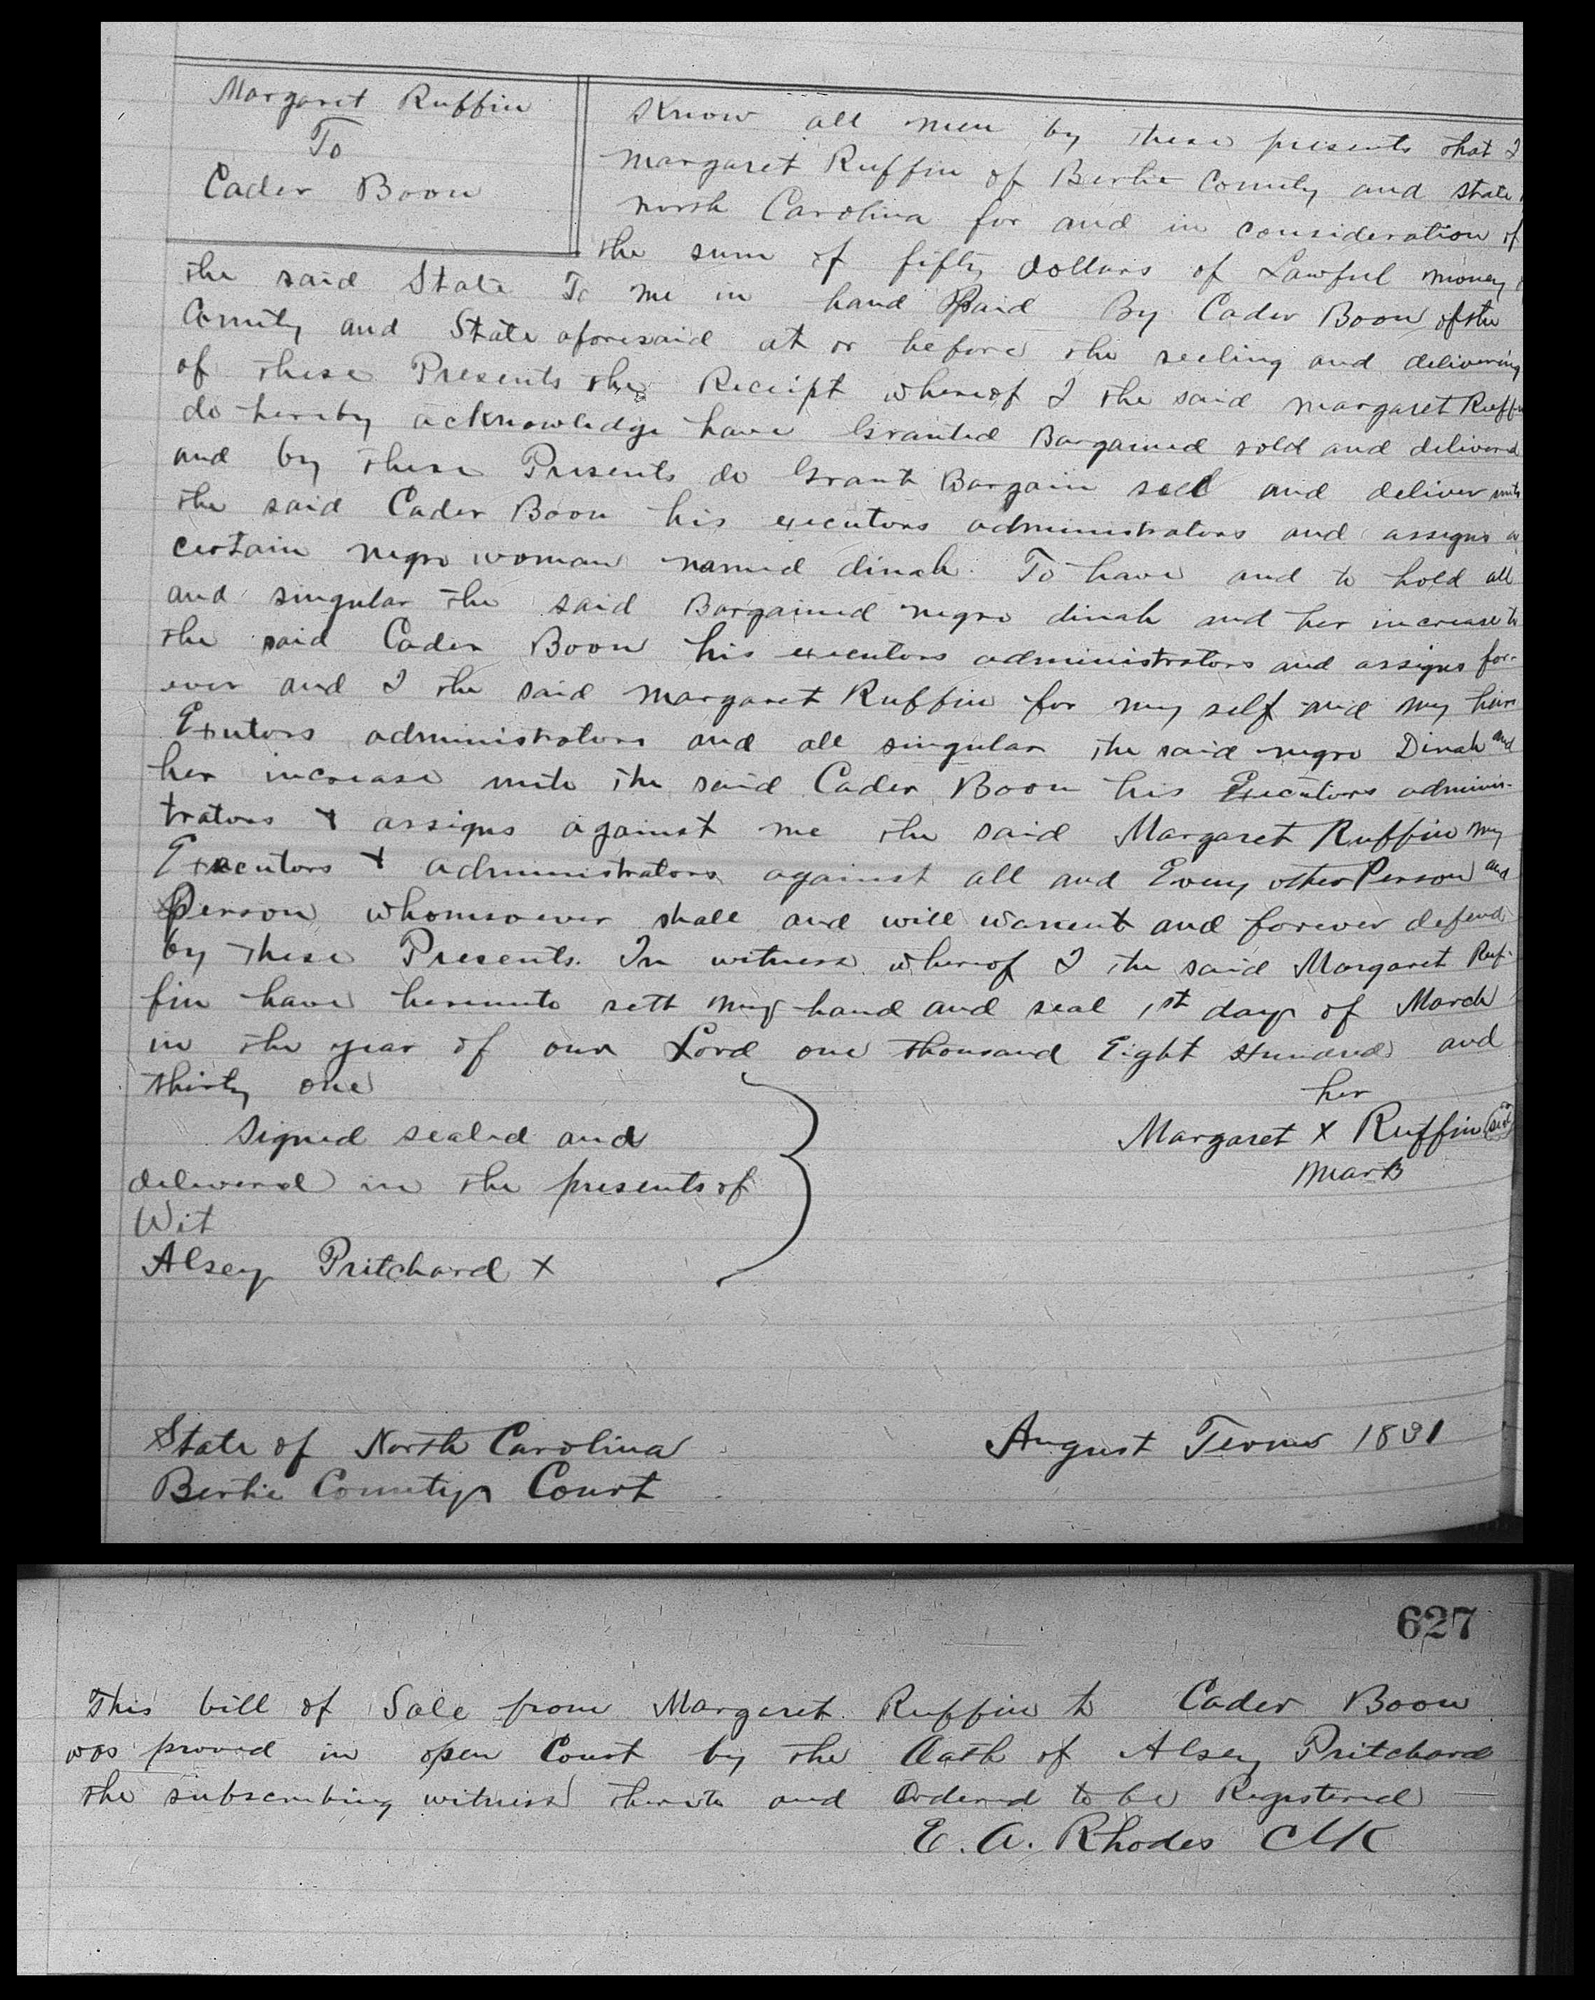 Margaret Ruffin
To
Cader Boon
Know all men by these presents that I
Margaret Ruffin of Bertie County and state
North Carolina for and in consideration of
the sum of fifty dollars of Lawful money
the said State To me in hand Paid By Cader Boon of the
County and State aforesaid at or before the seeling and delivering
of these Presents the Receipt whereof I the said Margaret Ruffin
do hereby acknowledge have Granted Bargained sold and delivered
and by these Presents do Grant Bargain sell and deliver unto
the said Cader Boon his executors administrators and assigns a
certain negro woman named dinah. To have and to hold all
and singular the said Bargained negro dinah and her increase to
the said Cader Boon his executors administrators and assigns for-
ever and I the said Margaret Ruffin for my self and my heirs
Exutors administrators and all singular the said negro Dinah and
her increase unto the said Cader Boon his Executors adminis-
trators & assigns against me the said Margaret Ruffin my
Executors & administrators against all and Every other Person and
Person whomsoever shall and will warrent and forever defend
by these Presents. In witness whereof I the said Margaret Ruf-
fin have hereunto sett my hand and seal 1st day of March
in the year of our Lord one thousand Eight Hundred and
thirty one
her
Signed sealed and
Margaret X Ruffin (seal)
mark
delivered in the presents of
Wit
Alsey Pritchard X
State of North Carolina
August Term 1831
Bertie County Court
627
This bill of Sale from Margaret Ruffin to Cader Boon
was proved in open Court by the Oath of Alsey Pritchard
the subscribing witness thereto and Ordered to be Registered
E. A. Rhodes Clk